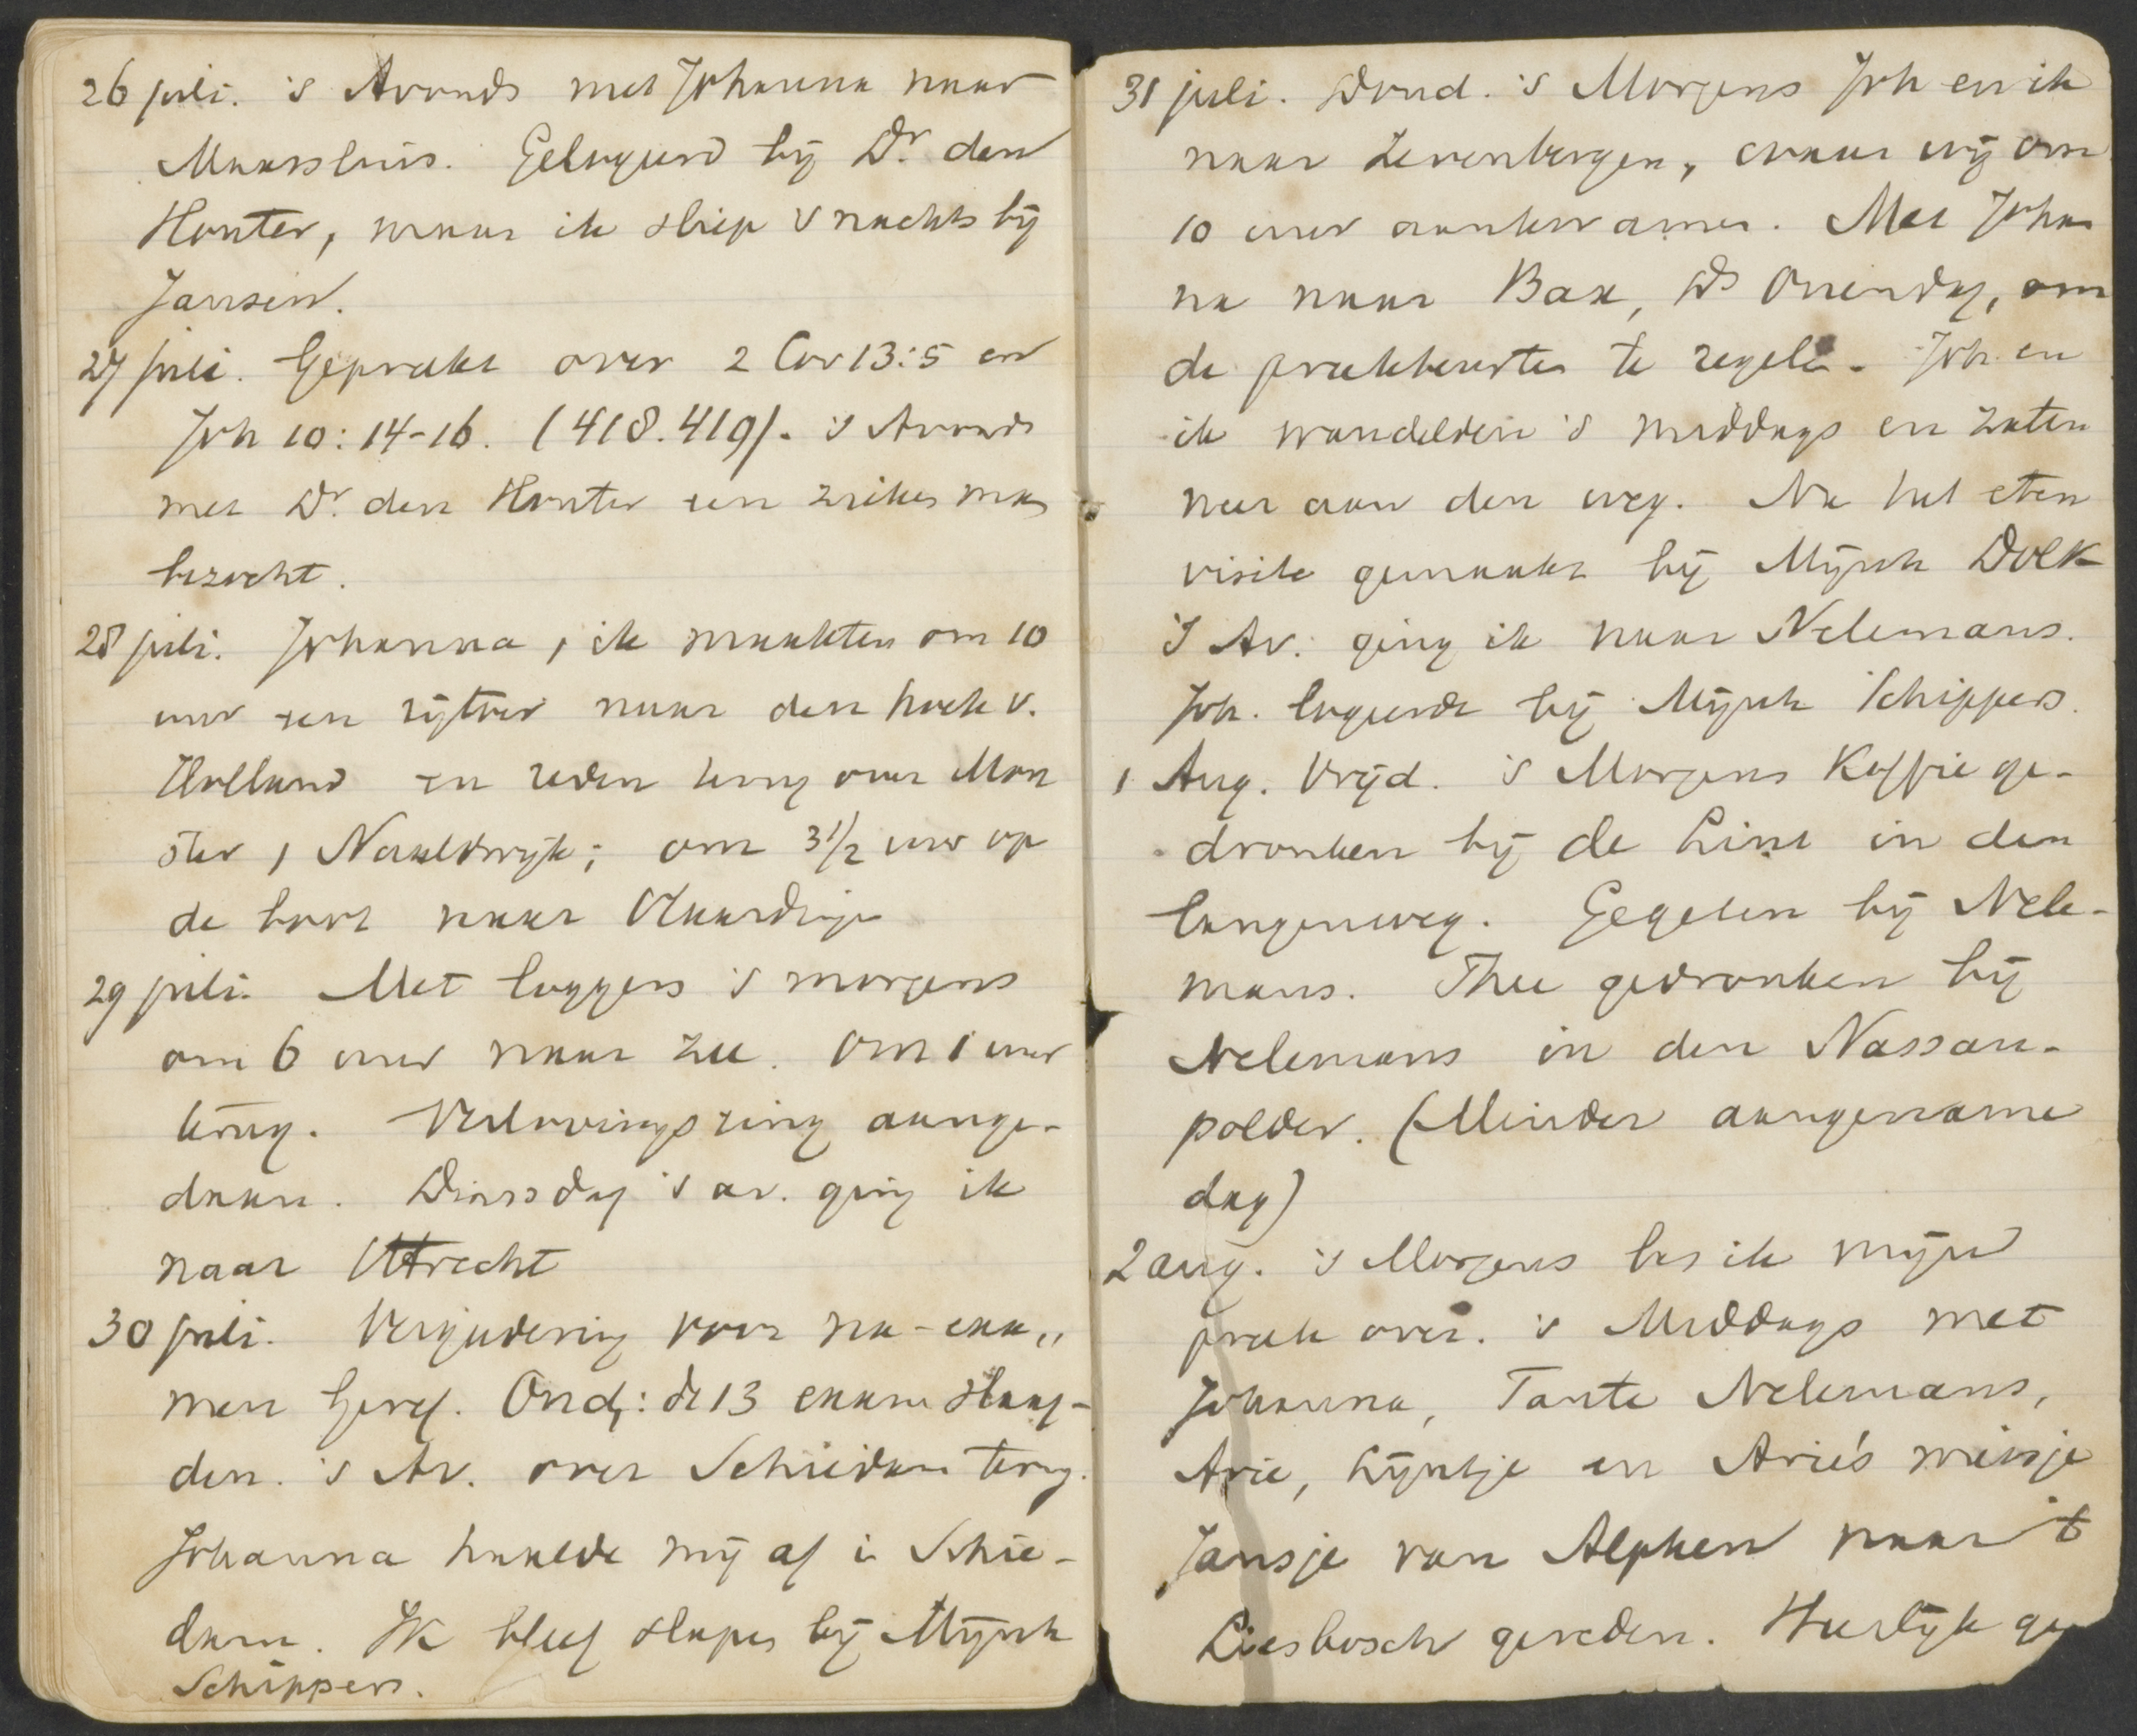 26 juli. 's Avonds met Johanna naar
Maassluis. Gelogeerd bij Dr. den
Houter, maar ik sliep 's nachts bij
Jansen.
27 juli. Gepreekt over 2 Cor 13:5 en
Joh 10:14-16. (418.419). 's Avonds
met Dr. den Houter een zieken man
bezocht.
28 juli. Johanna, ik maakten om 10
uur een rijtoer naar den hoek v.
Holland en reden terug over Mon
ster, Naaldwijk; om 3½ uur op
de boot naar Vlaardingen
29 juli. Met loggers 's morgens
om 6 uur naar zee. Om 1 uur
terug. Verlovingsring aange-
daan. Dinsdag 's av. ging ik
naar Utrecht
30 juli. Vergadering voor na-exa„
men Geref. Ond: de 13 exam slaag-
den. 's Av. over Schiedam terug.
Johanna haalde mij af in Schie-
dam. Ik bleef slapen bij Mijnh
Schippers.
31 juli. Dond. 's Morgens Joh en ik
naar Zevenbergen, waar wij om
10 uur aankwamen. Met Johan
na naar Bax, Ds om
de preekbeurten te regelen. Joh. en
ik wandelden 's middags en zaten
neer aan den weg. Na het eten
visite gemaakt bij Mijnh Dolk
's Av. ging ik naar Nelemans.
Joh. logeerde bij Mijnh Schippers.
1 Aug. Vrijd. 's Morgens Koffie ge-
dronken bij de Lint in den
langenweg. Gegeten bij Nele-
mans. Thee gedronken bij
Nelemans in den Nassau-
polder. (Minder aangename
dag)
2 aug. 's Morgens las ik mijn
preek over. 's Middags met
Johanna, Tante Nelemans,
Arie, Lijntje en Arie's meisje
Jansje van Alphen naar 't
Liesbosch gereden. Heerlijk ge